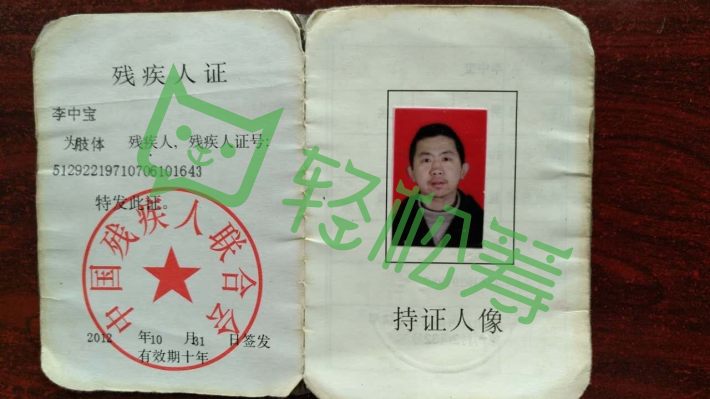 残疾人证
李中宝
为肢体 残疾人，残疾人证号：
51292219710706101643
特发此证。
中国残疾人联合会
2012 年10 月31 日签发
有效期十年
持证人像
轻松筹